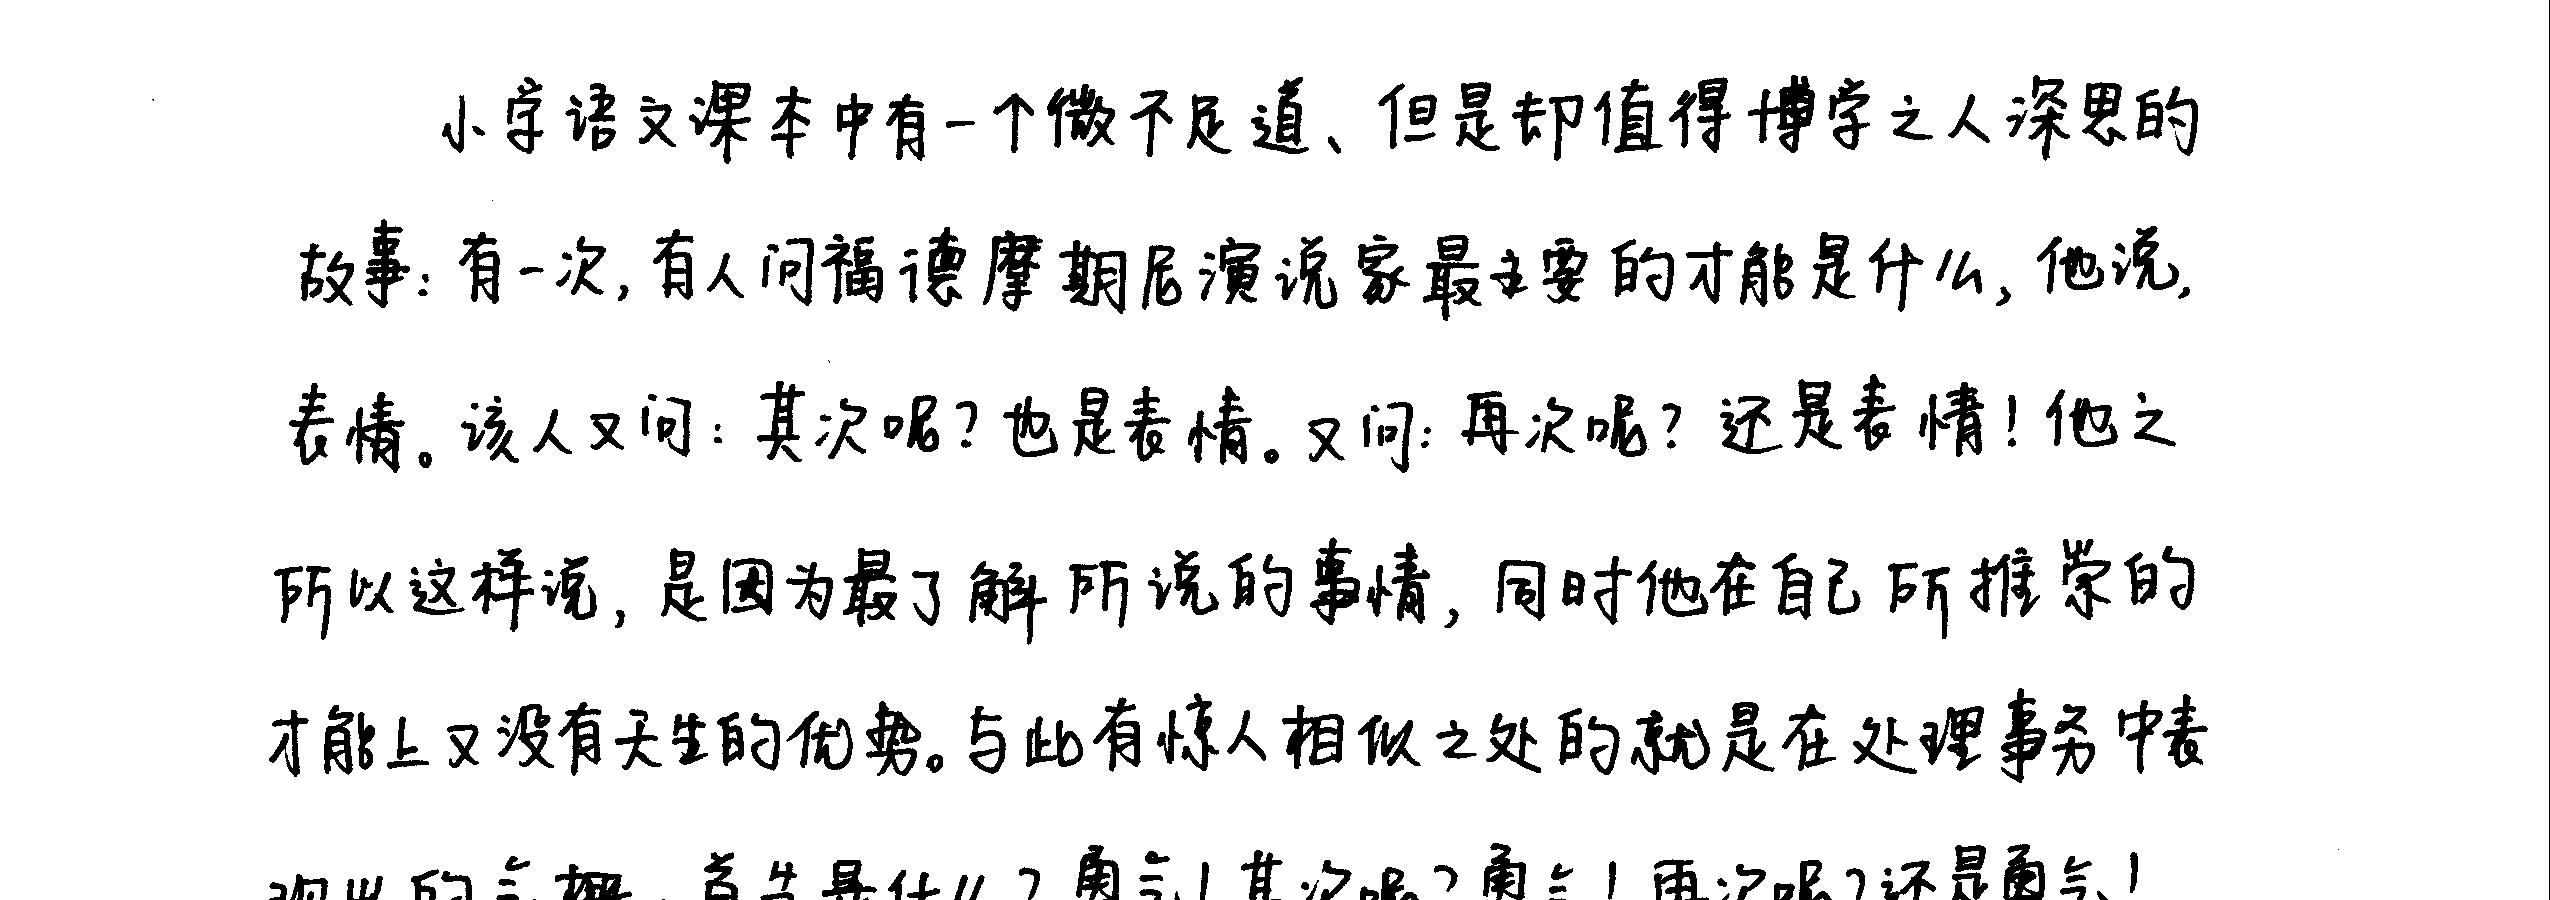 小学语文课本中有一个微不足道、但是却值得博学之人深思的
故事:有一次,有人问福德摩期尼演说家最主要的才能是什么,他说,
表情。该人又问:其次呢?也是表情。又问:再次呢?还是表情!他之
所以这样说,是因为最了解所说的事情,同时他在自己所推崇的
才能上又没有天生的优势。与此有惊人相似之处的就是在处理事务中表
现出的气概,首先是什么?勇气!其次呢?勇气!再次呢?还是勇气!